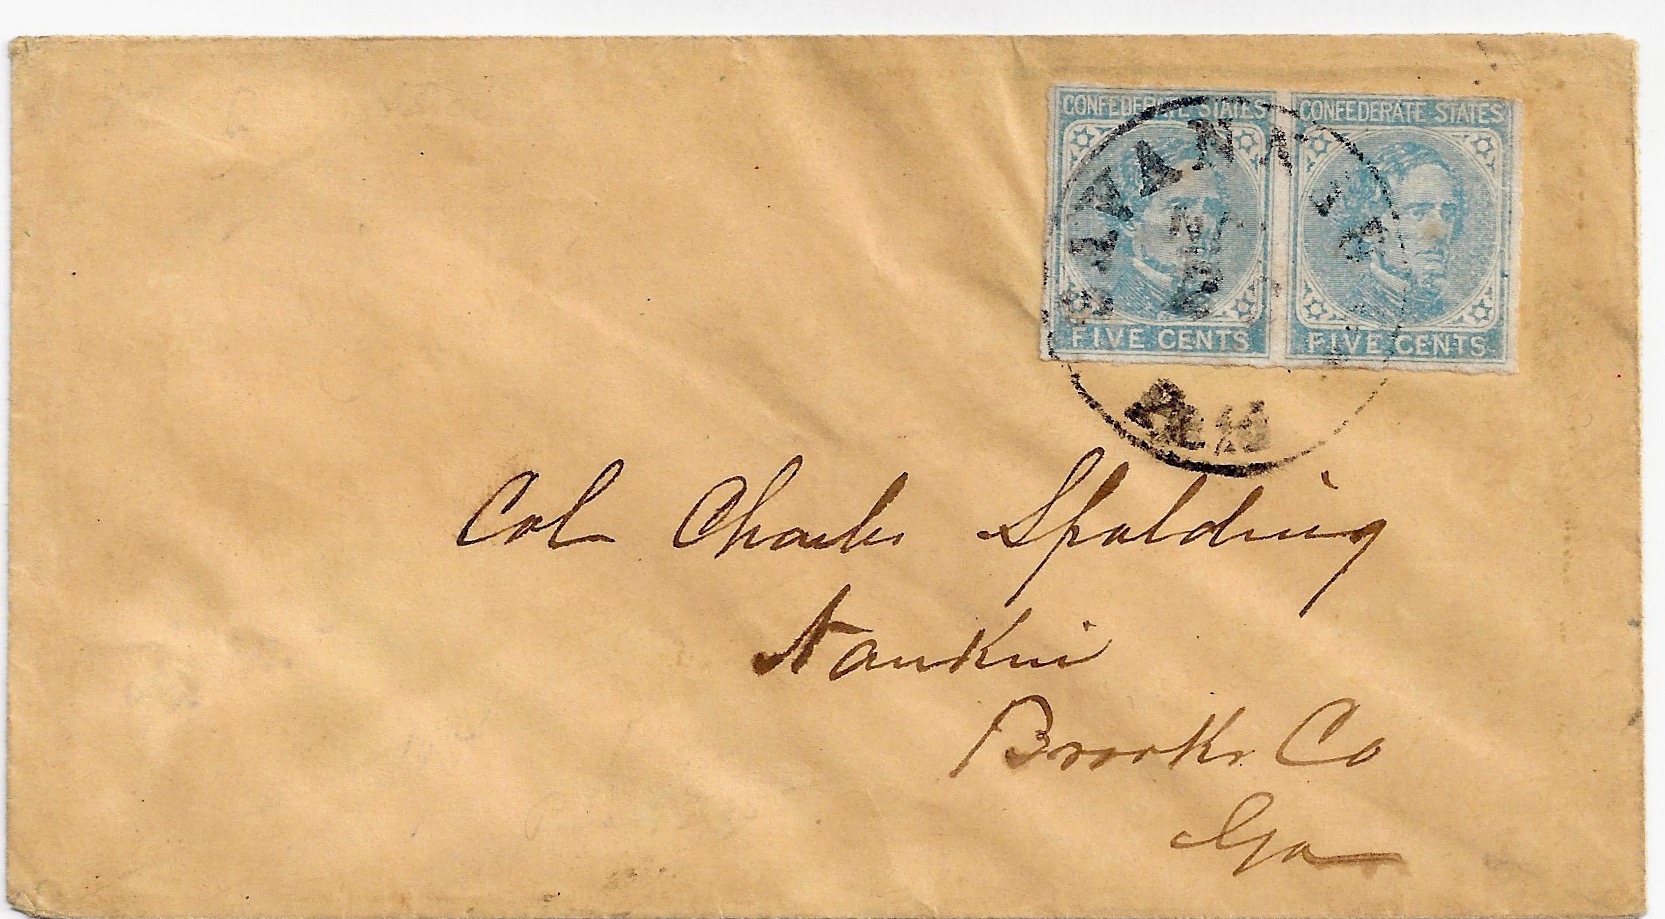 CONFEDERATE STATES CONFEDERATE STATES
FIVE CENTS FIVE CENTS
SAVANNAH
Col Charles Spalding
Nankin
Brooks Co
Ga